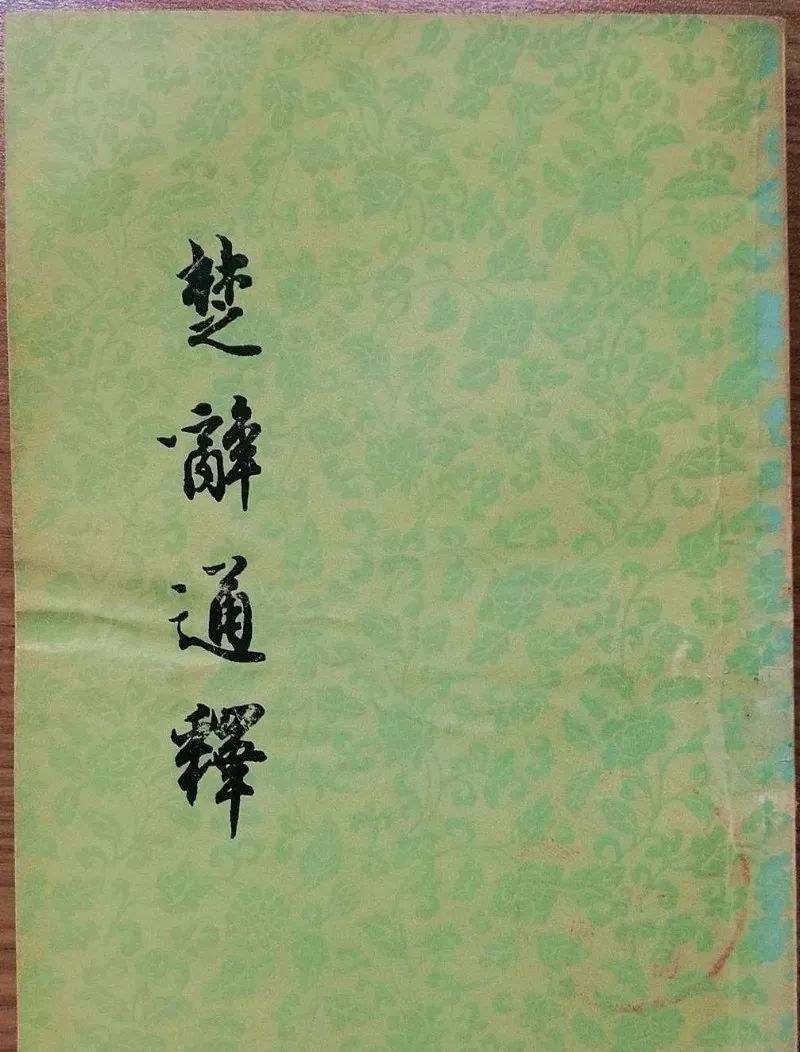 楚辭通釋